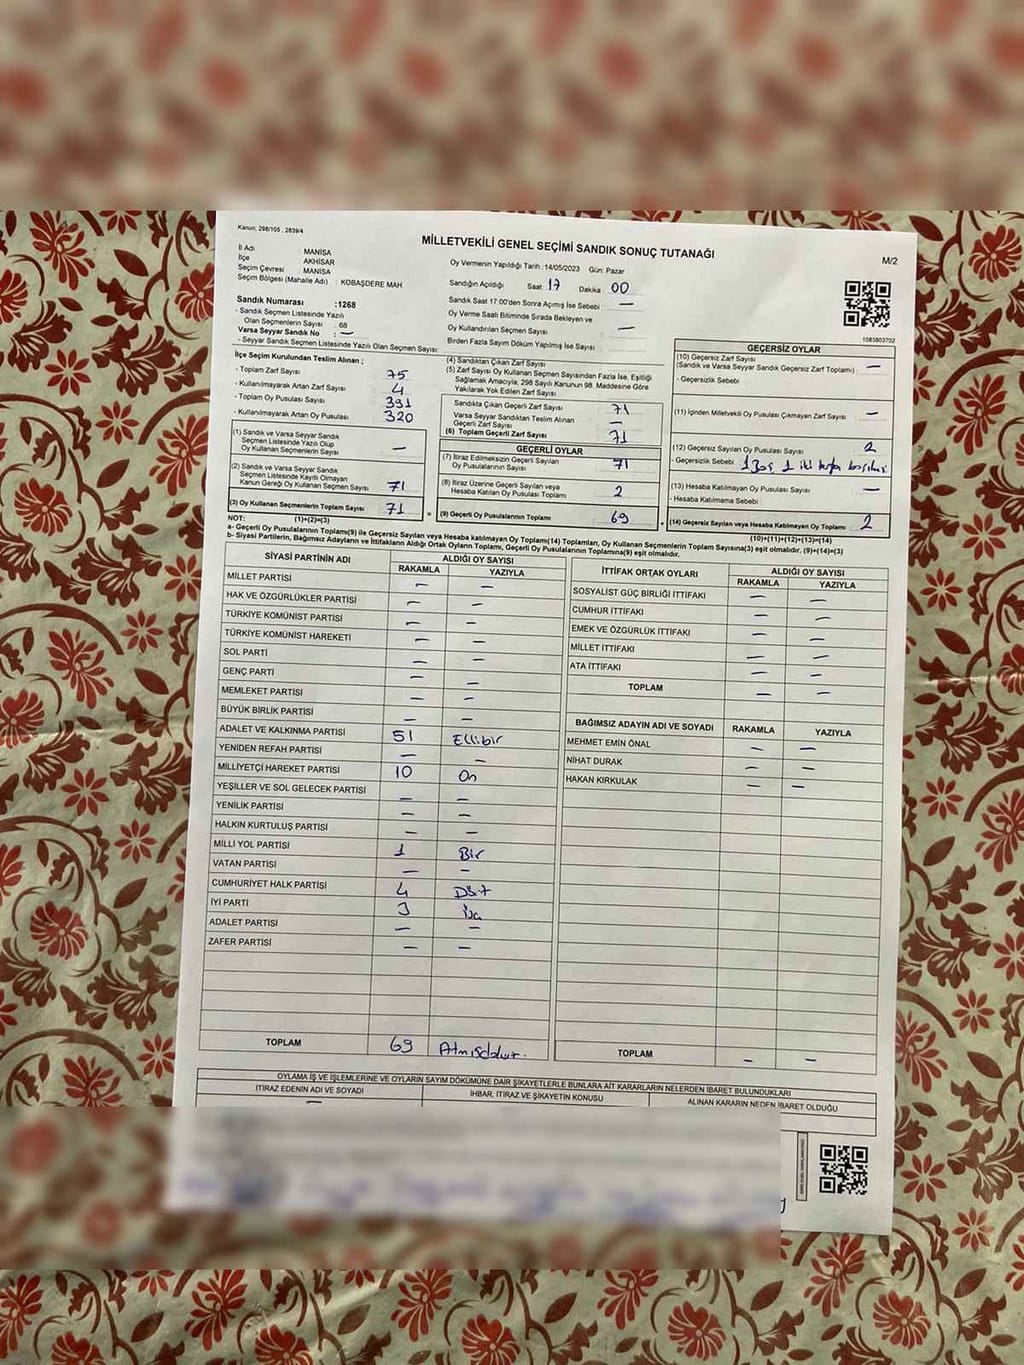 Kanun; 298/105 , 2839/4
MİLLETVEKİLİ GENEL SEÇİMİ SANDIK SONUÇ TUTANAĞI
M/2
İl Adı : MANİSA
İlçe : AKHİSAR
Seçim Çevresi : MANİSA
Seçim Bölgesi (Mahalle Adı) : KOBAŞDERE MAH
Sandık Numarası :1268
- Sandık Seçmen Listesinde Yazılı
Olan Seçmenlerin Sayısı : 68
Varsa Seyyar Sandık No : —
- Seyyar Sandık Seçmen Listesinde Yazılı Olan Seçmen Sayısı:
Oy Vermenin Yapıldığı Tarih :14/05/2023 Gün: Pazar
Sandığın Açıldığı Saat 17 Dakika 00
Sandık Saat 17:00'den Sonra Açılmış İse Sebebi : —
Oy Verme Saati Bitiminde Sırada Bekleyen ve
Oy Kullandırılan Seçmen Sayısı : —
Birden Fazla Sayım Döküm Yapılmış İse Sayısı:
1083803702
İlçe Seçim Kurulundan Teslim Alınan ;
- Toplam Zarf Sayısı : 75
- Kullanılmayarak Artan Zarf Sayısı : 4
- Toplam Oy Pusulası : 391
- Kullanılmayarak Artan Oy Pusulası : 320
(1) Sandık ve Varsa Seyyar Sandık
Seçmen Listesinde Yazılı Olup
Oy Kullanan Seçmenlerin Sayısı : —
(2) Sandık ve Varsa Seyyar Sandık
Seçmen Listesinde Kayıtlı Olmayan
Kanun Gereği Oy Kullanan Seçmen Sayısı : 71
(3) Oy Kullanan Seçmenlerin Toplam Sayısı : 71
(1)+(2)=(3)
(4) Sandıktan Çıkan Zarf Sayısı :
(5) Zarf Sayısı Oy Kullanan Seçmen Sayısından Fazla İse, Eşitliği
Sağlamak Amacıyla, 298 Sayılı Kanunun 98. Maddesine Göre
Yakılarak Yok Edilen Zarf Sayısı :
Sandıkta Çıkan Geçerli Zarf Sayısı : 71
Varsa Seyyar Sandıktan Teslim Alınan
Geçerli Zarf Sayısı : —
(6) Toplam Geçerli Zarf Sayısı : 71
GEÇERLİ OYLAR
(7) İtiraz Edilmeksizin Geçerli Sayılan
Oy Pusulalarının Sayısı : 71
(8) İtiraz Üzerine Geçerli Sayılan veya
Hesaba Katılan Oy Pusulası Toplamı : 2
(9) Geçerli Oy Pusulalarının Toplamı : 69
GEÇERSİZ OYLAR
(10) Geçersiz Zarf Sayısı
(Sandık ve Varsa Seyyar Sandık Geçersiz Zarf Toplamı) : —
- Geçersizlik Sebebi :
(11) İçinden Milletvekili Oy Pusulası Çıkmayan Zarf Sayısı : —
(12) Geçersiz Sayılan Oy Pusulası Sayısı : 2
- Geçersizlik Sebebi : 1 Boş 1 iki
(13) Hesaba Katılmayan Oy Pusulası Sayısı : —
- Hesaba Katılmama Sebebi :
(14) Geçersiz Sayılan veya Hesaba Katılmayan Oy Toplamı : 2
(10)+(11)+(12)+(13)=(14)
NOT:
a- Geçerli Oy Pusulalarının Toplamı(9) ile Geçersiz Sayılan veya Hesaba Katılmayan Oy Toplamı(14) Toplamları, Oy Kullanan Seçmenlerin Toplam Sayısına(3) eşit olmalıdır. (9)+(14)=(3)
b- Siyasi Partilerin, Bağımsız Adayların ve İttifakların Aldığı Ortak Oyların Toplamı, Geçerli Oy Pusulalarının Toplamına(9) eşit olmalıdır.
SİYASİ PARTİNİN ADI ALDIĞI OY SAYISI
RAKAMLA YAZIYLA
MİLLET PARTİSİ — —
HAK VE ÖZGÜRLÜKLER PARTİSİ — —
TÜRKİYE KOMÜNİST PARTİSİ — —
TÜRKİYE KOMÜNİST HAREKETİ — —
SOL PARTİ — —
GENÇ PARTİ — —
MEMLEKET PARTİSİ — —
BÜYÜK BİRLİK PARTİSİ — —
ADALET VE KALKINMA PARTİSİ 51 Ellibir
YENİDEN REFAH PARTİSİ — —
MİLLİYETÇİ HAREKET PARTİSİ 10 On
YEŞİLLER VE SOL GELECEK PARTİSİ — —
YENİLİK PARTİSİ — —
HALKIN KURTULUŞ PARTİSİ — —
MİLLİ YOL PARTİSİ 1 Bir
VATAN PARTİSİ — —
CUMHURİYET HALK PARTİSİ 4 Dört
İYİ PARTİ 3 Üç
ADALET PARTİSİ — —
ZAFER PARTİSİ — —
TOPLAM 69 Atmışdokuz.
İTTİFAK ORTAK OYLARI ALDIĞI OY SAYISI
RAKAMLA YAZIYLA
SOSYALİST GÜÇ BİRLİĞİ İTTİFAKI — —
CUMHUR İTTİFAKI — —
EMEK VE ÖZGÜRLÜK İTTİFAKI — —
MİLLET İTTİFAKI — —
ATA İTTİFAKI — —
TOPLAM — —
BAĞIMSIZ ADAYIN ADI VE SOYADI RAKAMLA YAZIYLA
MEHMET EMİN ÖNAL — —
NİHAT DURAK — —
HAKAN KIRKULAK — —
TOPLAM — —
OYLAMA İŞ VE İŞLEMLERİNE VE OYLARIN SAYIM DÖKÜMÜNE DAİR ŞİKAYETLERLE BUNLARA AİT KARARLARIN NELERDEN İBARET BULUNDUKLARI
İTİRAZ EDENİN ADI VE SOYADI İHBAR, İTİRAZ VE ŞİKAYETİN KONUSU ALINAN KARARIN NEDEN İBARET OLDUĞU
—